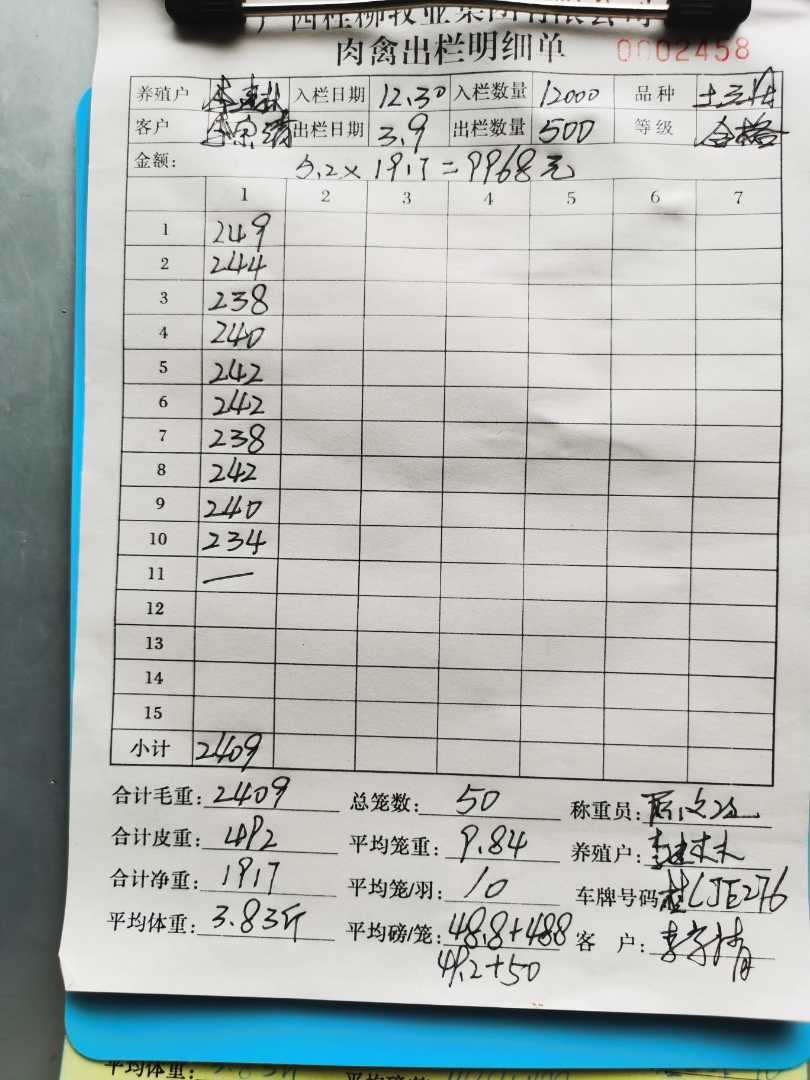 广西桂柳牧业集团有限公司
肉禽出栏明细单 0002458
养殖户 入栏日期 12.30 入栏数量 12000 品种
客户 出栏日期 3.9 出栏数量 500 等级 合格
金额: 5.2×1917=9968元
1 2 3 4 5 6 7
1 249
2 244
3 238
4 240
5 242
6 242
7 238
8 242
9 240
10 234
11 —
12
13
14
15
小计 2409
合计毛重: 2409 总笼数: 50 称重员:
合计皮重: 492 平均笼重: 9.84 养殖户:
合计净重: 1917 平均笼/羽: 10 车牌号码 桂CJE276
平均体重: 3.83斤 平均磅/笼: 48.8+488 客 户:
49.2+50
平均体重: 3.83斤